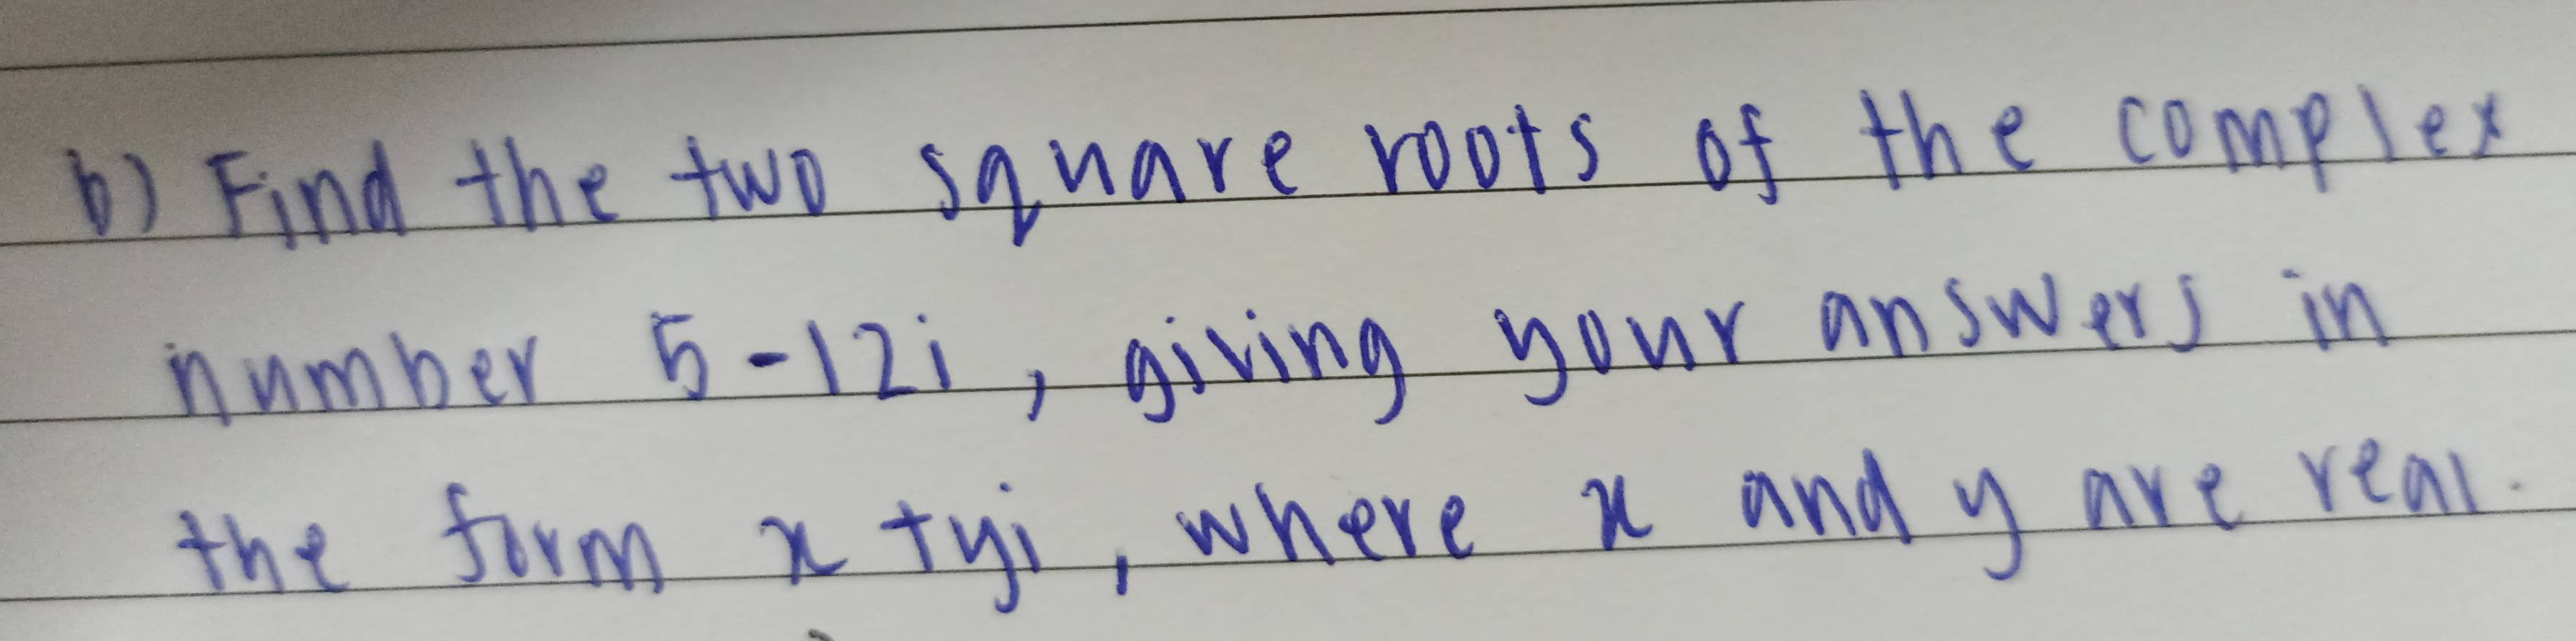 b) Find the two square roots of the complex
number 5-12i, giving your answers in
the form x + yi, where x and y are real.